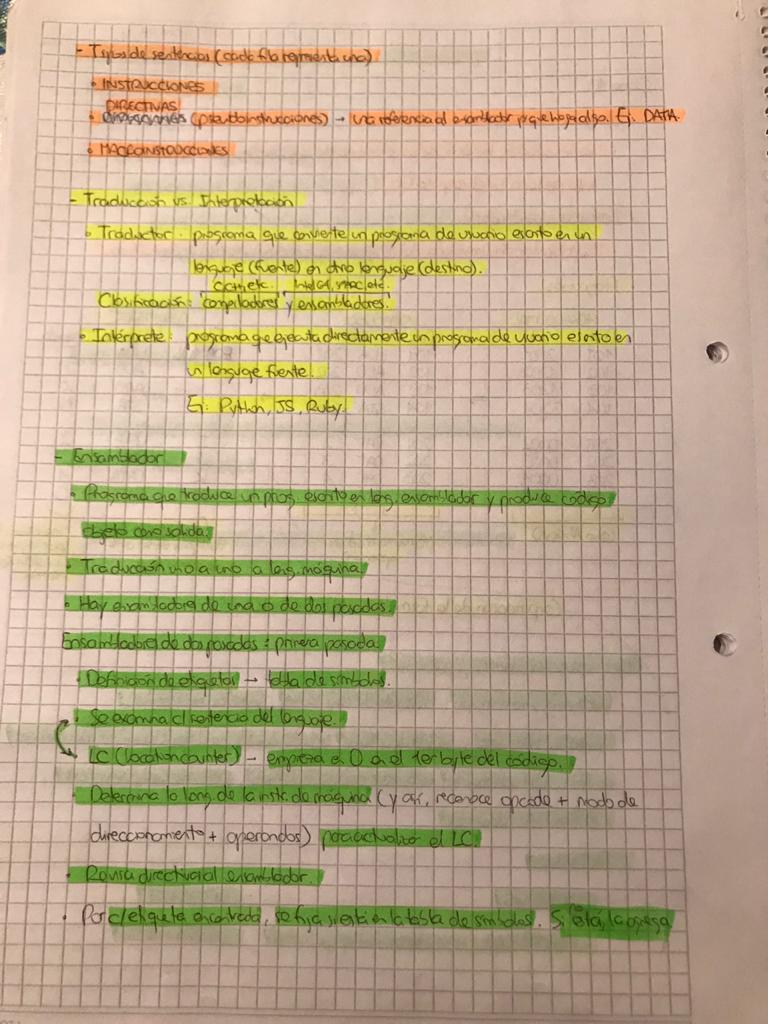 - Tipos de sentencias (cada fila representa una)
• INSTRUCCIONES
DIRECTIVAS
• (pseudoinstrucciones) → una referencia al ensamblador p/ que haga algo. Ej: DATA.
• MACROINSTRUCCIONES
- Traducción vs. Interpretación
• Traductor: programa que convierte un programa de usuario escrito en un
lenguaje (fuente) en otro lenguaje (destino).
C, C++, etc. Intel 64, etc.
Clasificación: "compiladores" y ensambladores.
• Intérprete: programa que ejecuta directamente un programa de usuario escrito en
un lenguaje fuente.
Ej: Python, JS, Ruby.
- Ensamblador
• Programa que traduce un prog. escrito en leng. ensamblador y produce código
objeto como salida.
• Traducción uno a uno a leng. máquina.
• Hay ensambladores de una o de dos pasadas.
Ensambladores de dos pasadas: primera pasada
• Definición de etiquetas → tabla de símbolos.
• Se examina c/ sentencia del lenguaje.
LC (location counter) → empieza en 0 en el 1er byte del código.
• Determina la long. de la instr. de máquina (y así, reconoce opcode + modo de
direccionamiento + operandos) para actualizar el LC.
• Revisa directivas al ensamblador.
• Por c/ etiqueta encontrada, se fija si está en la tabla de símbolos. Si no está, la agrega